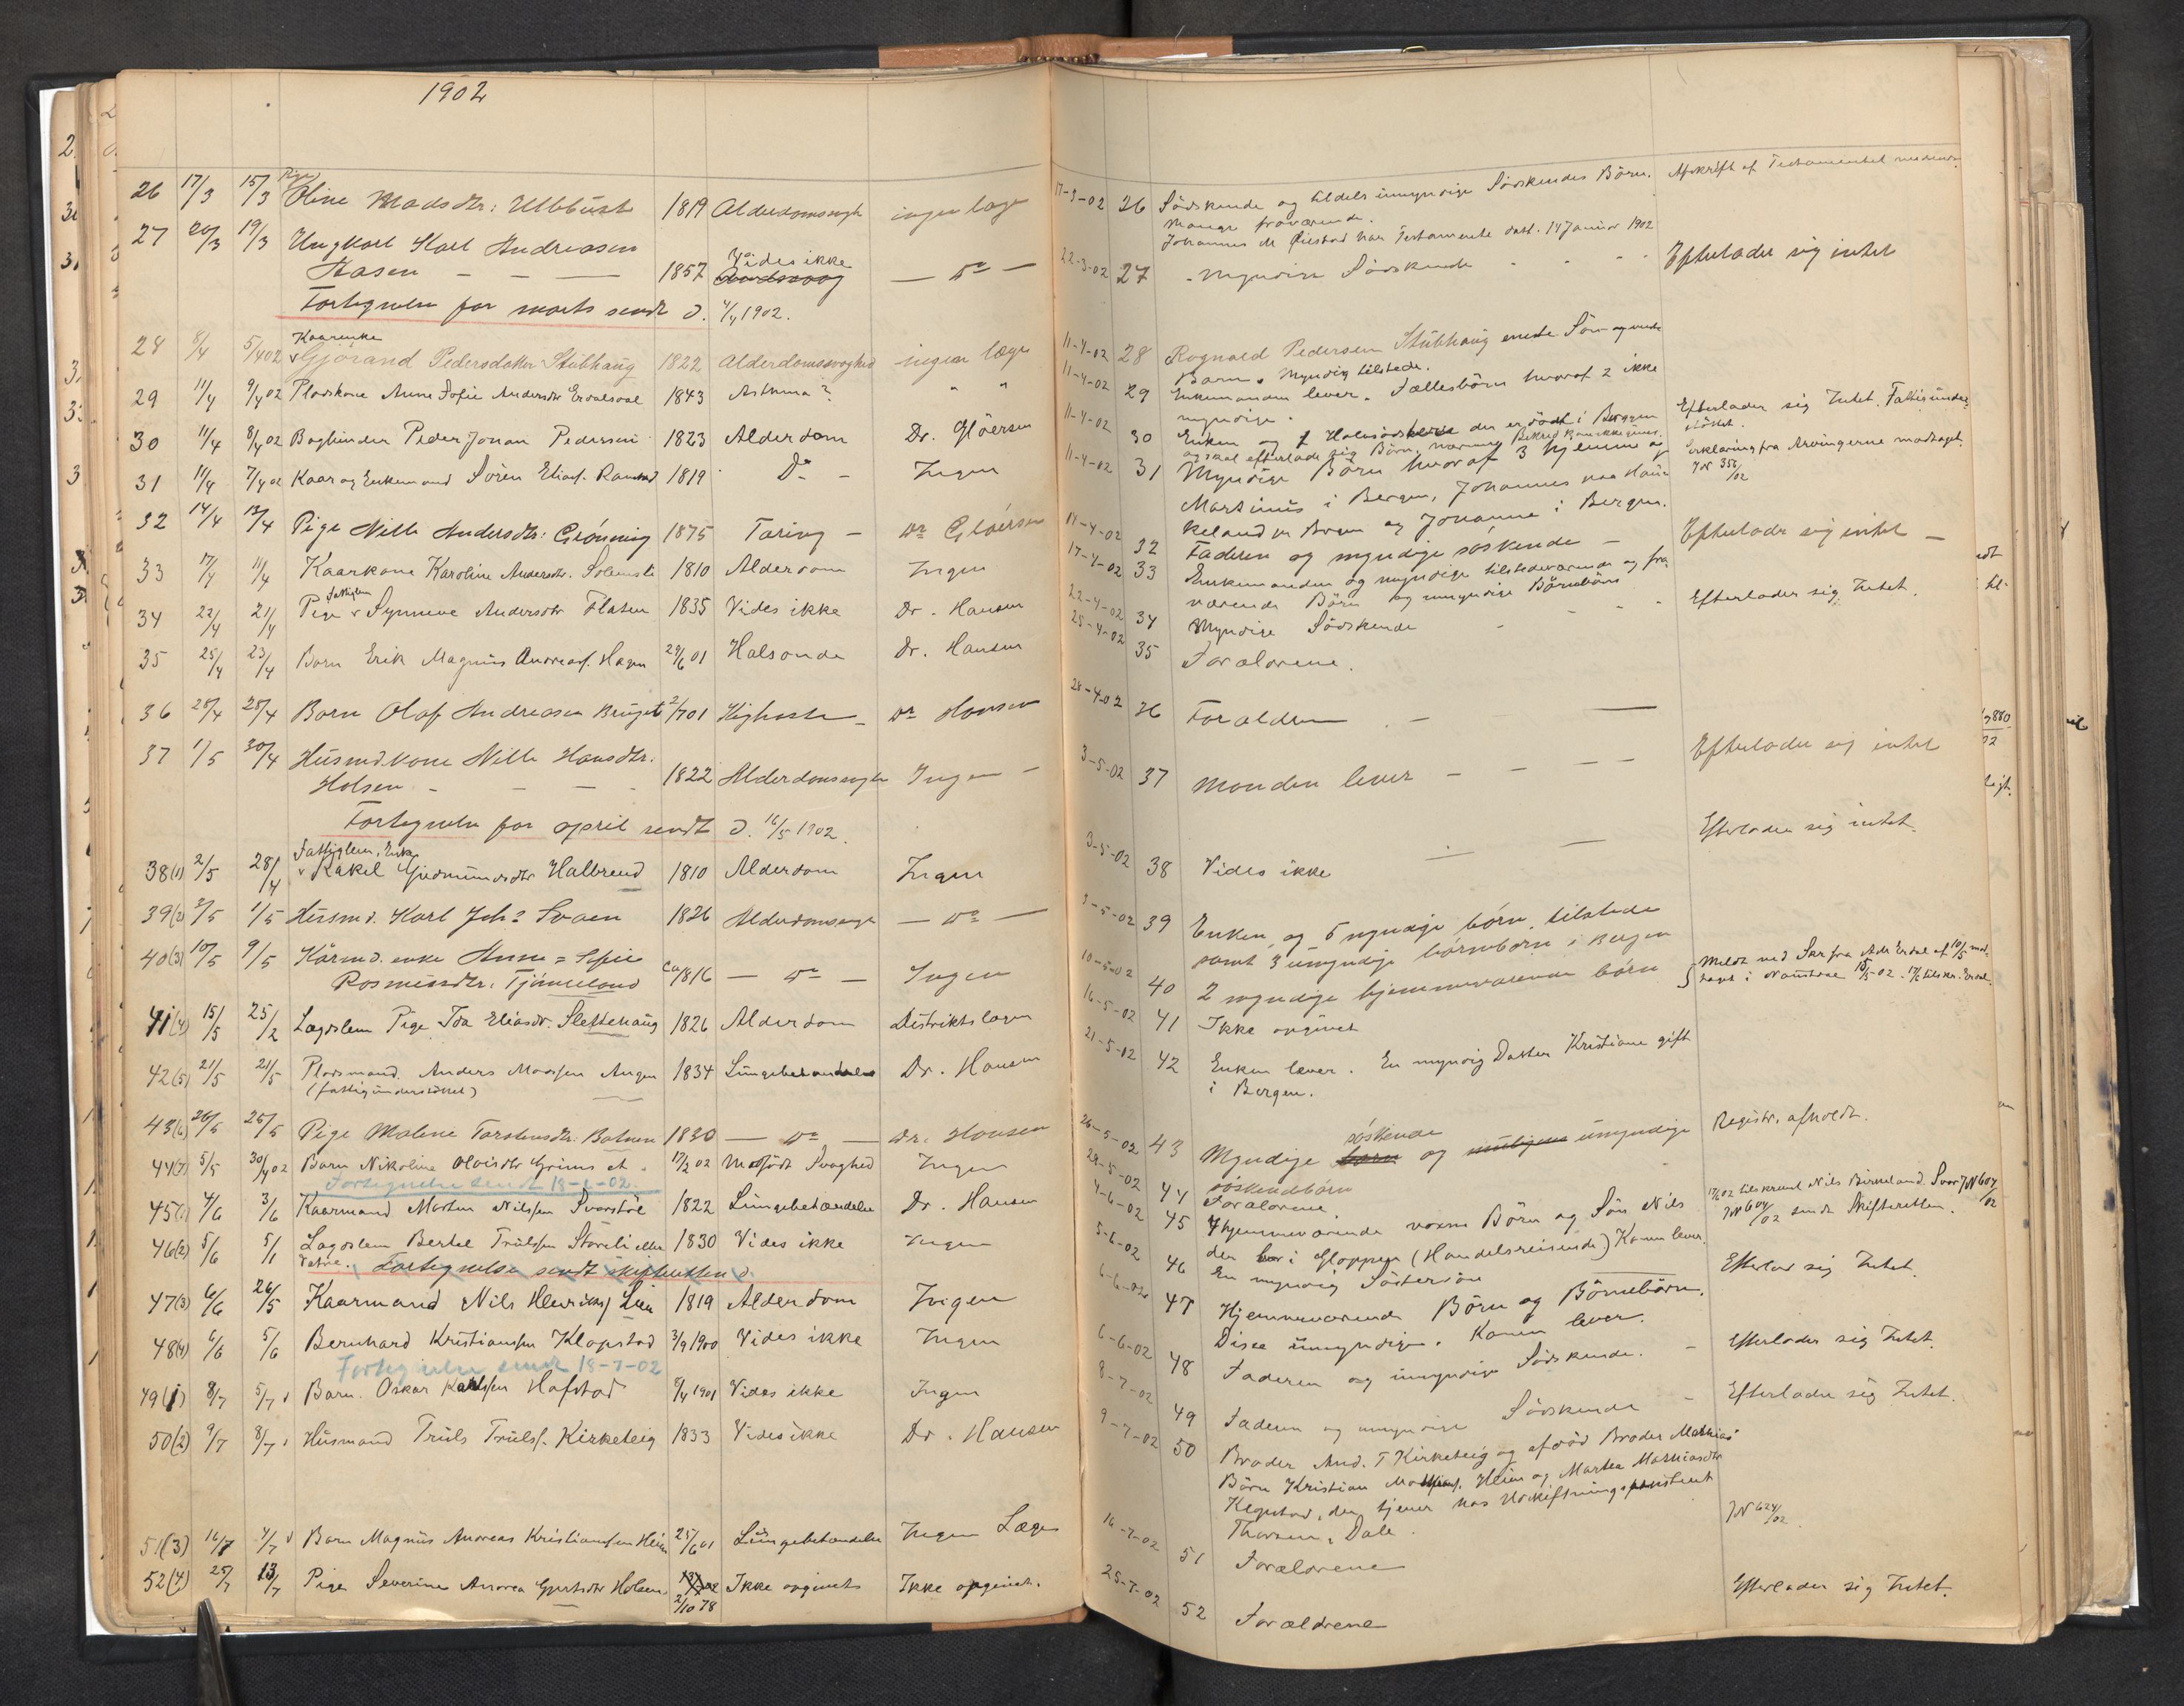 1902
Pige
26 17/3 15/3 Oline Madsdtr: Ullebust 1819 Alderdomssvagh ingen læge
27 20/3 19/3 Ungkarl Karl Andreasen
Vides ikke
Aasen — — — 1857 — Do —
Fortegnelse for marts sendt d. 4/4 1902.
Kaarenke
28 8/4 5/4 02 Gjørand Pedersdatter Stubhaug 1822 Alderdomssvaghed ingen læge
29 11/4 9/4 02 Pladskone Anne Sofie Andersdtr Erdalsdal 1843 Asthma? " "
30 11/4 8/4 02 Bogbinder Peder Jonan Pedersen 1823 Alderdom Dr. Gløersen
31 11/4 7/4 02 Kaar og Enkemand Søren Eliass. 1819 Do - Ingen
32 14/4 13/4 Pige Nille Andersdtr: Grønning 1875 Tæring - Dr Gløersen
33 17/4 11/4 Kaarkone Karoline Andersdtr. Solemsli 1810 Alderdom Ingen
fattiglem
34 22/4 21/4 Pige Synneve Andersdtr Flaten 1835 Vides ikke Dr. Hansen
35 25/4 23/4 Barn Erik Magnus Andreass. Hagen 29/6 01 Halsonde Dr. Hansen
36 28/4 28/4 Barn Olaf Andreasen Bruget 2/7 01 Kighoste - Dr Hansen
37 1/5 30/4 Husmd.kone Nille Hansdtr.
Holsen - - - 1822 Alderdomssvagh Ingen -
Fortegnelse for april sendt d. 16/5 1902.
Fattiglem, Enke
38(1) 2/5 28/4 Rakel Gudmundsdtr Halbrend 1810 Alderdom Ingen
39(2) 3/5 1/5 Husmd. Karl Johs Svaen 1826 Alderdomssvagh — Do —
40(3) 10/5 9/5 Kårmd. enke Anne = Sofie
Rasmusdtr. Tjønneland ca 1816 — Do — Ingen
41(4) 15/5 25/2 Lægdslem Pige Ida Eliasdr. Slettehaug 1826 Alderdom Distriktslægen
42(5) 21/5 21/5 Pladsmand. Anders Madssen Angen 1834 Lungebetændelse Dr. Hansen
(fattigunderstøttet)
43(6) 26/5 25/5 Pige Malene Torstensdtr. Botnen 1830 — Do — Dr. Hansen
44(7) 5/5 30/4 02 Barn Nikoline Olaisdtr Grimset 17/2 02 Medfødt Svaghed Ingen
Fortegnelse sendt 13-6-02.
45(1) 4/6 3/6 Kaarmand Morten Nilssen Svarstøl 1822 Lungebetændelse Dr. Hansen
46(2) 5/6 5/1 Lægdslem Bertel Trulssen Støreli eller 1830 Vides ikke Ingen
Fortegnelse sendt skifteretten d.
47(3) 6/6 26/5 Kaarmand Nils Henriks. Lien 1819 Alderdom Ingen
48(4) 6/6 5/6 Bernhard Kristianssen Klopstad 3/9 1900 Vides ikke Ingen
Fortegnelse sendt 13-7-02
49(1) 8/7 5/7 Barn. Oskar Karlssen Hafstad 8/4 1901 Vides ikke Ingen
50(2) 9/7 8/7 Husmand Truls Trulss. Kirketeig 1833 Vides ikke Dr. Hansen
51(3) 16/7 4/7 Barn Magnus Andreas Kristianssen Heim 25/6 01 Lungebetændelse Ingen Læge
52(4) 25/7 13/7 Pige Severine Andrea Gjertsdtr Holsen. 2/10 78 Ikke opgivets Ikke opgivet.
17-3-02 26 Sødskende og tildels umyndige Sødskendes Børn. Afskrift af Testamentet
Mange fraværende.
Johannes M Øilstad har Testamente dat. 14 Januar 1902
22-3-02 27 - Myndige Sødskende - - - Efterlader sig intet
11-4-02 28 Rognald Pedersen Stubhaug eneste Søn og eneste
Barn. Myndig tilstede.
11-4-02 29 Enkemanden lever. Fællesbørn hvoraf 2 ikke
myndige. Efterlader sig Intet. Fattigunder-
støttet.
11-4-02 30 Enken og 1 Halvsødskende der er død i Bergen
og skal efterlade sig Børn, Erklæring fra Arvingerne modtaget.
JN 356/02
11-4-02 31 Myndige Børn hvoraf 3 hjemme og
Martinus i Bergen, Johannes paa Hau-
keland pr Bergen og Johanne i Bergen.
14-4-02 32 Faderen og myndige søskende — Efterlader sig intet —
17-4-02 33 Enkemanden og myndige tilstedeværende og fra-
værende Børn og umyndige Børnebørn
22-4-02 34 Myndige Sødskende - - - Efterlader sig Intet.
25-4-02 35 Forældrene.
28-4-02 36 Forældrene —
3-5-02 37 Manden lever - - - - Efterlader sig intet
3-5-02 38 Vides ikke - — Efterlader sig intet.
3-5-02 39 Enken, og 5 myndige børn, tilstede
samt 3 umyndige børnebørn i Bergen
10-5-02 40 2 myndige hjemmeværende børn
16-5-02 41 Ikke opgivet
21-5-02 42 Enken lever. En myndig Datter Kristiane gift
i Bergen.
søskende
26-5-02 43 Myndige børn og umyndige Registr. afholdt.
søskendebørn
28-5-02 44 Forældrene.
4-6-02 45 4 hjemmeværende voxne Børn og Søn Nils
der bor i Gloppen (Handelsreisende) Konen lever.
17/6 02 tilskrevet Nils Birkeland. Svar JN 604/02
JN 604/02 sendt Skifteretten.
5-6-02 46 En myndig Søstersøn Efterlod sig Intet.
6-6-02 47 Hjemmeværende Børn og Børnebørn.
Disse umyndige. Konen lever.
6-6-02 48 Faderen og umyndige Sødskende. - Efterlader sig Intet.
8-7-02 49 Faderen og umyndige Sødskende - Efterlader sig Intet.
9-7-02 50 Broder And. T Kirketeig og afdød Broder Mathias'
Børn Kristian Mathias. Heim og Marthea Mathiasdtr
Klopstad, der tjener hos Udskiftningsassistent
Thorsen, Dale. JN 624/02.
16-7-02 51 Forældrene
25-7-02 52 Forældrene Efterlader sig Intet.